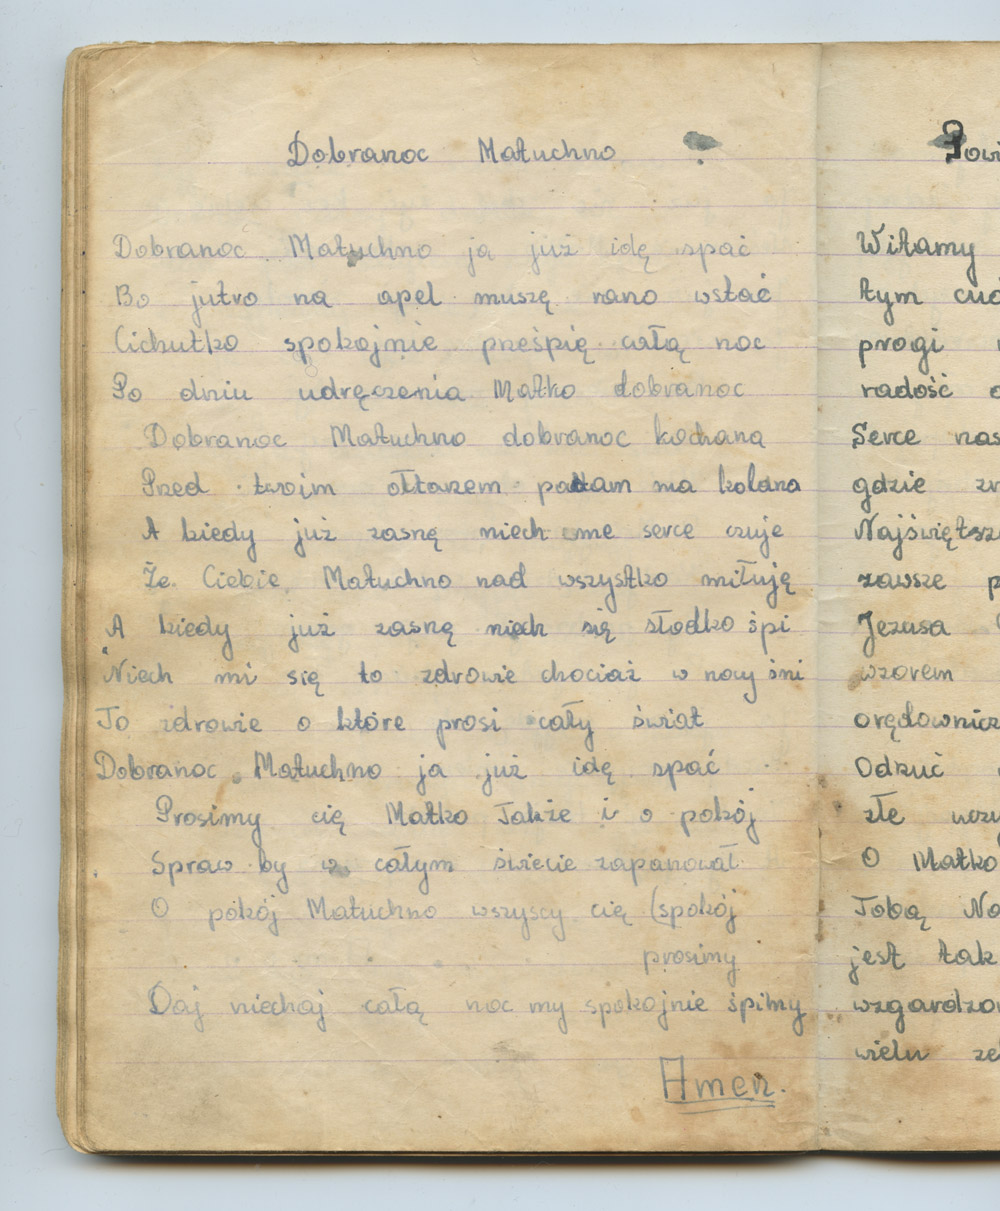 Dobranoc Matuchno
Dobranoc Matuchno ja już idę spać
Bo jutro na apel muszę rano wstać
Cichutko spokojnie prześpię całą noc
Po dniu udręczenia Matko dobranoc
Dobranoc Matuchno dobranoc kochana
Przed twoim ołtarzem padam na kolana
A kiedy już zasnę niech me serce czuje
Że Ciebie Matuchno nad wszystko miłuję
A kiedy już zasnę niech się słodko śpi
Niech mi się to zdrowie chociaż w nocy śni
To zdrowie o które prosi cały świat
Dobranoc Matuchno ja już idę spać
Prosimy cię Matko Także i o pokój
Spraw by w całym świecie zapanował
O pokój Matuchno wszyscy cię (spokój
prosimy
Daj niechaj całą noc my spokojnie śpimy
Amen.
Powi
Witamy
tym cud
progi
radość
Serce nas
gdzie
Najświętsz
zawsze p
Jezusa
wzorem
orędownicz
Odrzuć
złe
O Matko
Tobą Na
jest tak
wzgardzon
wielu